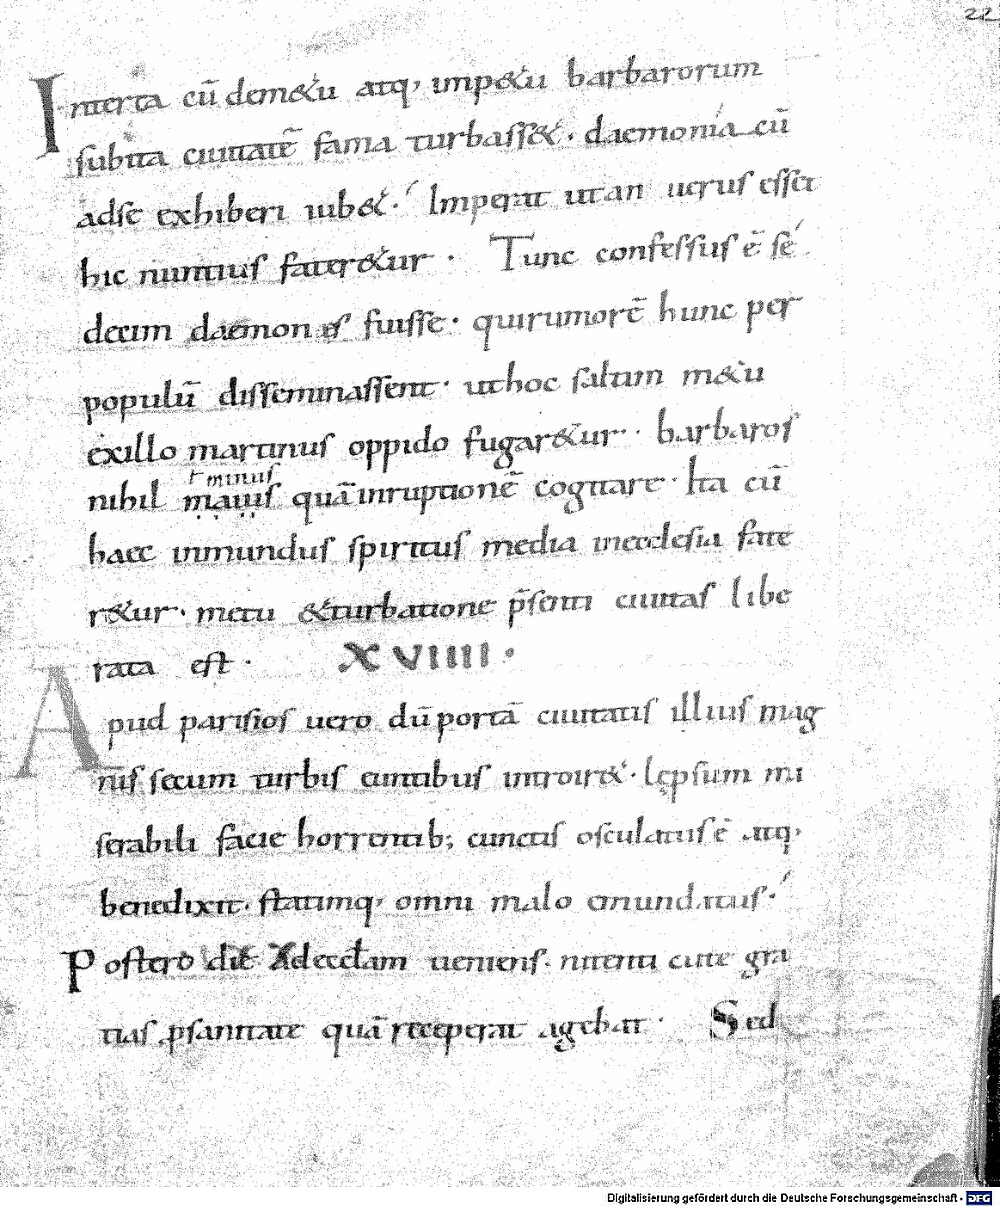 22
Interea cū dem&u atq; imp&u barbarorum
subita ciuitatē fama turbass&. daemonia cū
adse exhiberi iub&. Imperat utan uerus esset
hic nuntius fater&ur. Tunc confessus ē se
decim daemones fuisse. quirumorē hunc per
populū disseminassent. uthoc saltim m&u
exillo martinus oppido fugar&ur. barbaros
ł minus
nihil maius quā inruptionē cogitare. Ita cū
haec inmundus spiritus media inecclesia fate
r&ur. metu &turbatione p̄senti ciuitas libe
rata est. XVIIII.
Apud parisios uero dū portā ciuitatis illius mag
nis secum turbis euntibus introir&. lępsum mi
serabili facie horrentib; cunctis osculatus ē atq;
benedixit. statimq; omni malo emundatus.
Postero die Adecclam ueniens. nitenti cute gra
tias psanitate quā receperat agebat. Sed
Digitalisierung gefördert durch die Deutsche Forschungsgemeinschaft - DFG